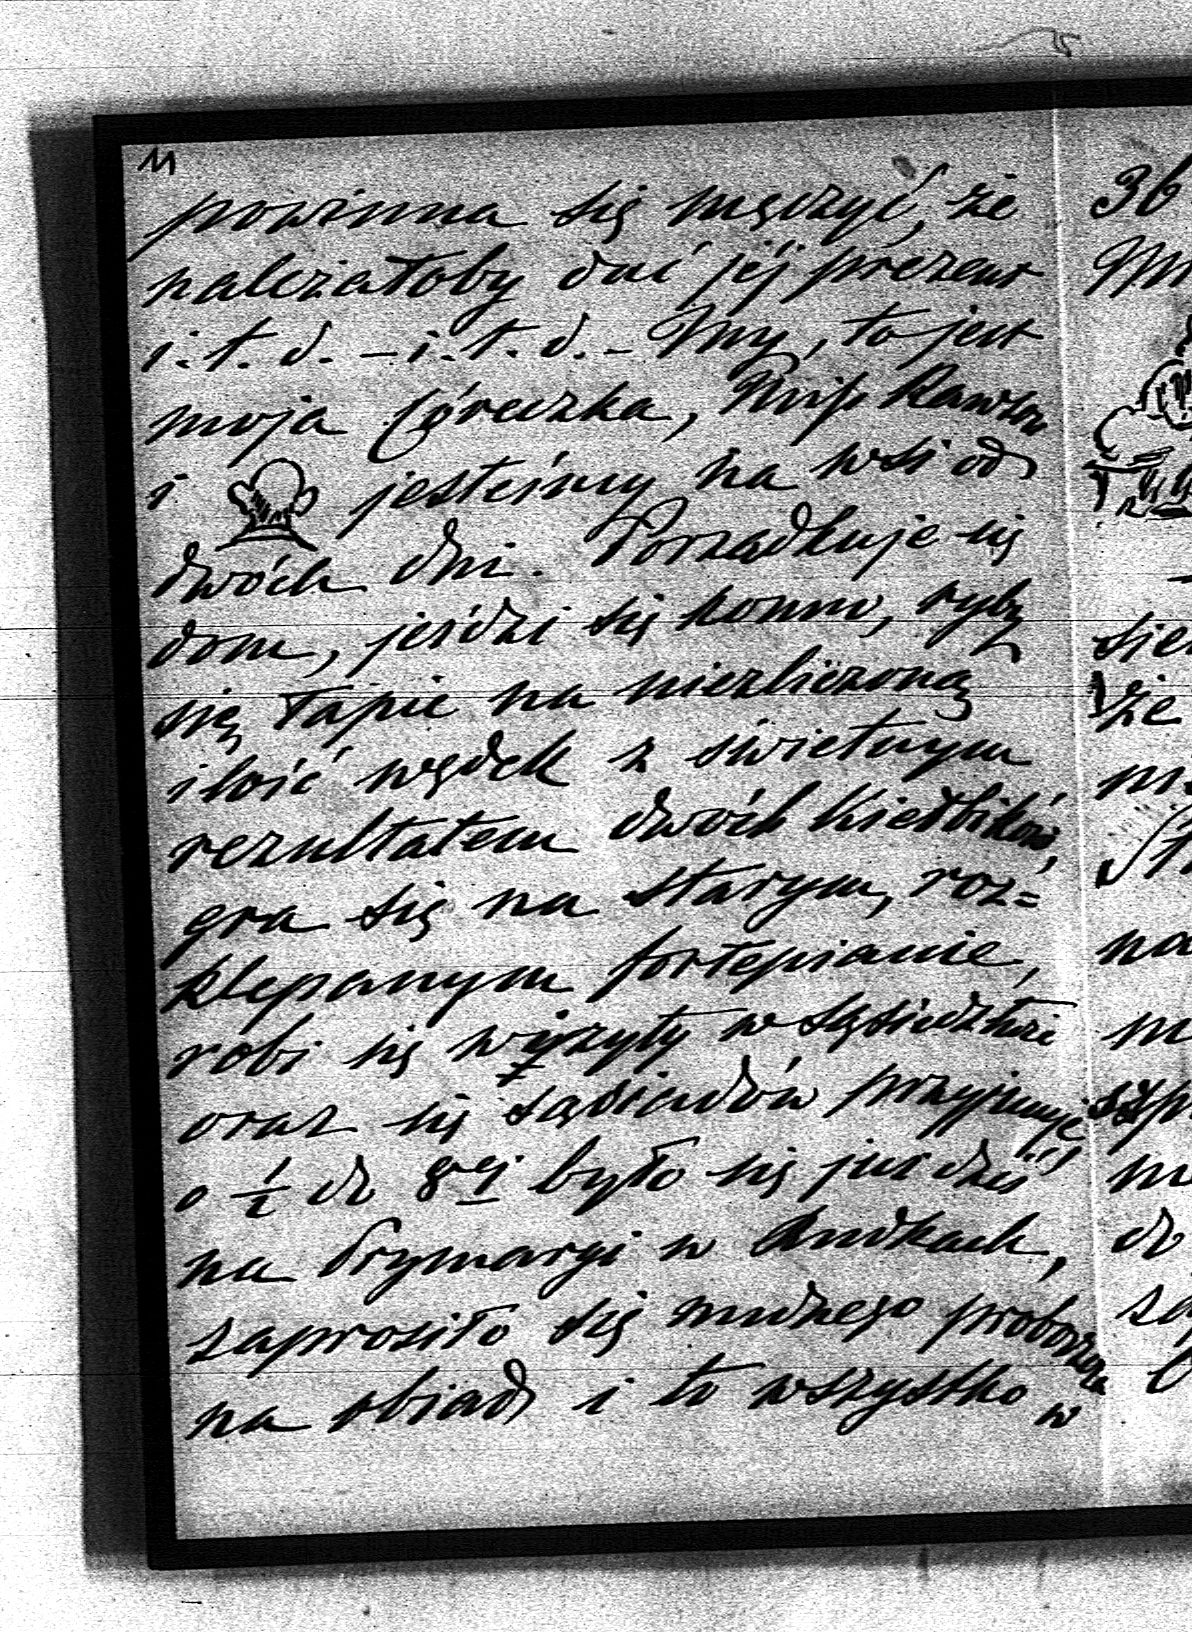 11
powinna się męczyć, że
należałoby dać jéj prézent
i. t. d. – i. t. d. – My, to jest
moja Córeczka,
i jesteśmy na wsi od
dwóch dni. Porządkuje się
dom, jeździ się konno, ryby
się łapie na niezliczoną
ilość wędek z świetnym
rezultatem dwóch kiełbików,
gra się na starym, roz=
klepanym fortepianie,
robi się wizyty w sąsiedztwie
oraz się sąsiadów przyjmuje
o ½ do 8ej było się już dziś
na Prymaryi w Rudkach,
zaprosiło się nudnego proboszcza
na obiad i to wszystko w
36